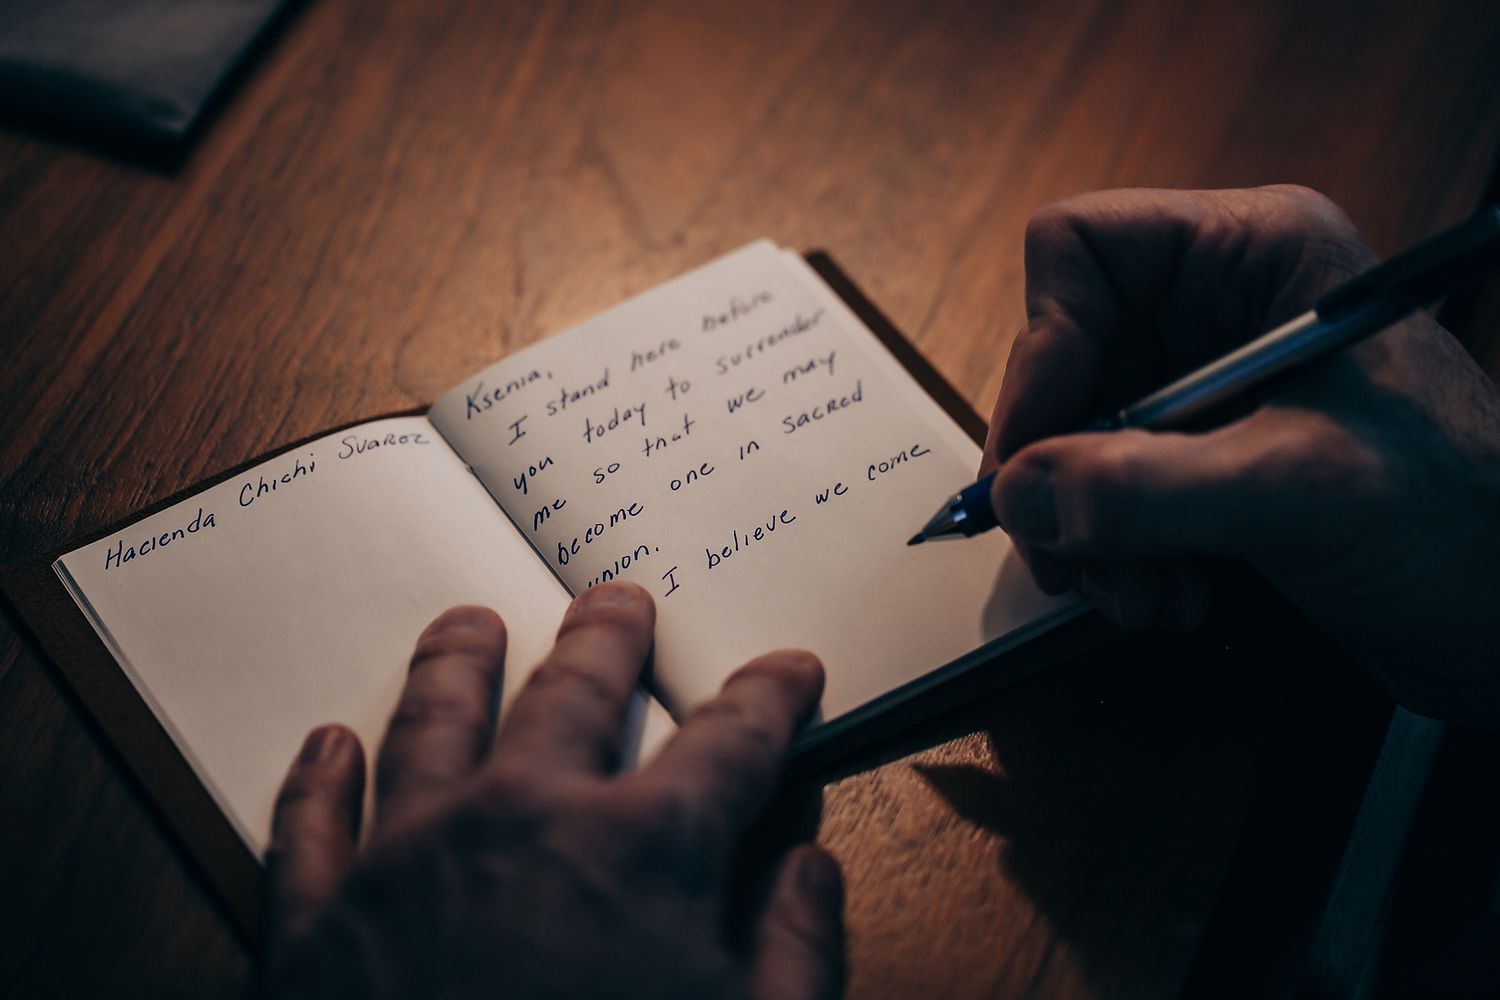 Hacienda Chichi Suarez
Ksenia,
I stand here before
you today to surrender
me so that we may
become one in sacred
union.
I believe we come